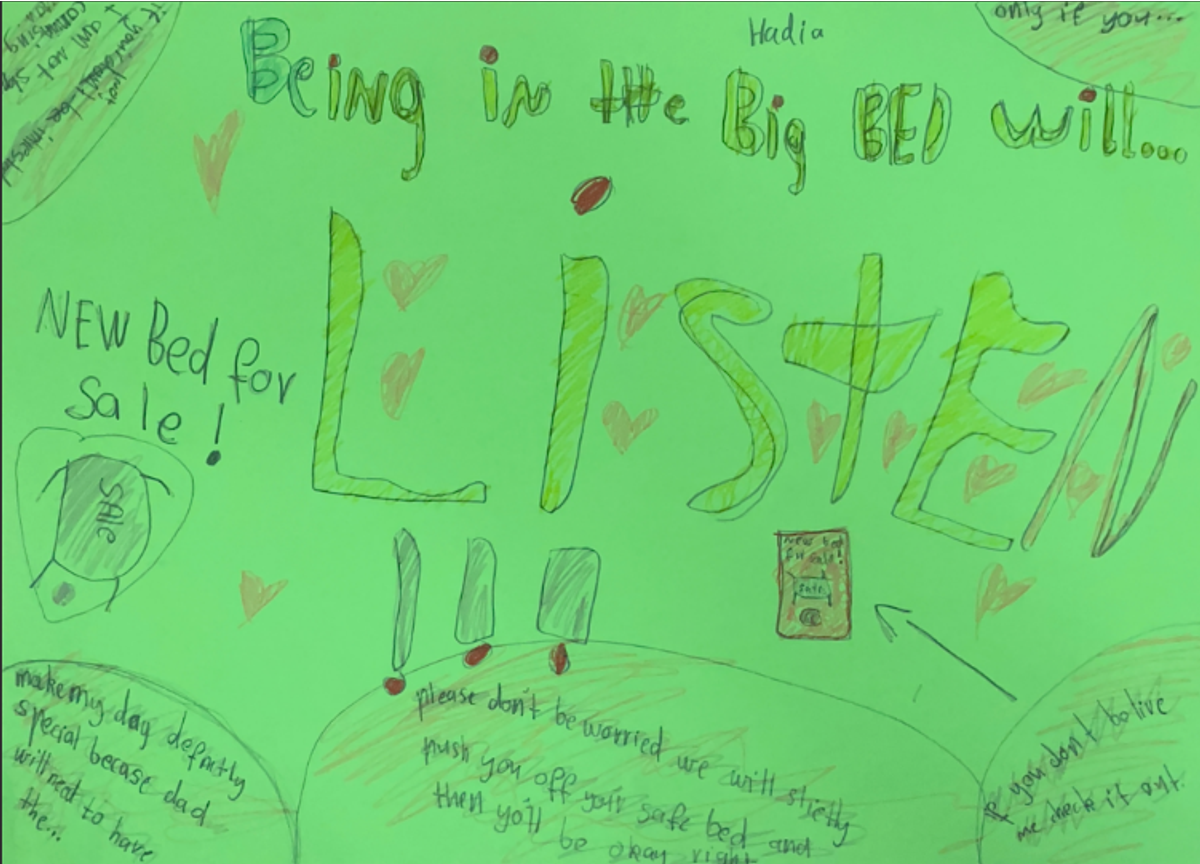 Hadia
only if you...
Being in the Big BED will...
if you don't be
I am not
LiSTEN
!!!
NEW Bed for
Sale!
SAle
New bed
for sale!
Sale
make my day defnctly
special becase dad
will neat to have
the...
please don't be worried we will
push you off your safe bed and
then yo'll be okay right
If you don't belive
me check it out.